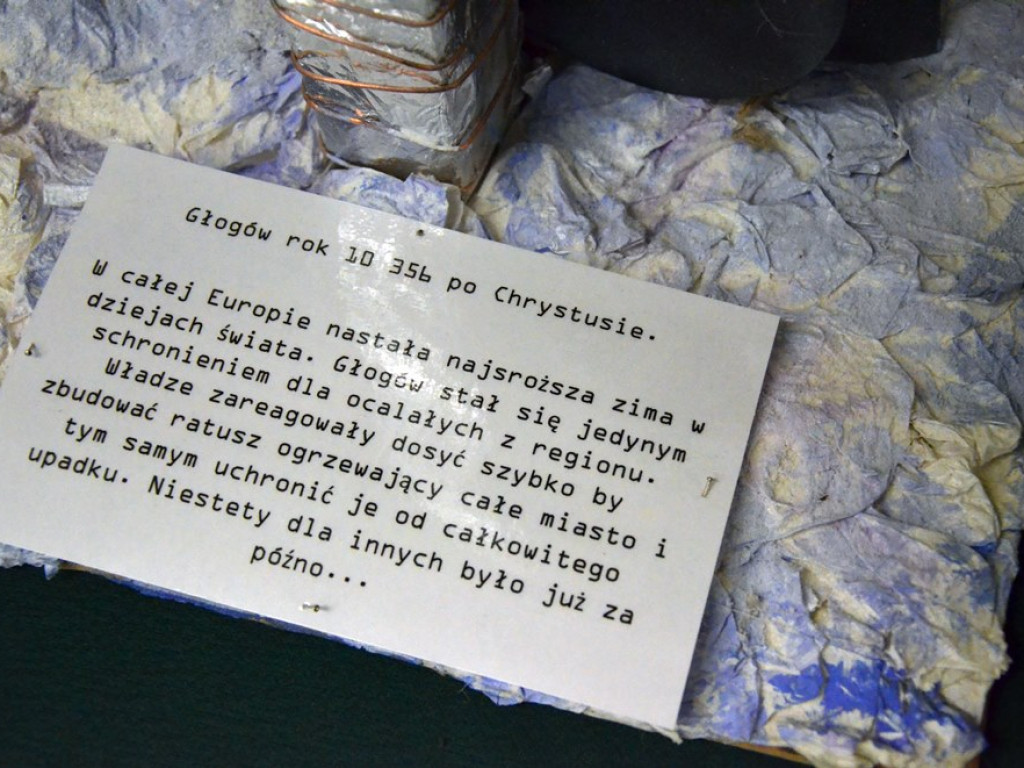 Głogów rok 10 356 po Chrystusie.
W całej Europie nastała najsroższa zima w
dziejach świata. Głogów stał się jedynym
schronieniem dla ocalałych z regionu.
Władze zareagowały dosyć szybko by
zbudować ratusz ogrzewający całe miasto i
tym samym uchronić je od całkowitego
upadku. Niestety dla innych było już za
późno...